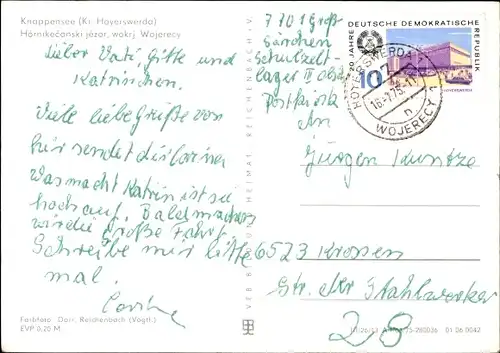 Knappensee (Kr. Hoyerswerda)
Hórnikečanski jězor, wokrj. Wojerecy
Lieber Vati, Gitte und
Katrinchen.
Viele liebe Grüße von
hier sendet dir Corina
Was macht Katrin ist sie
noch auf. Bald machen
wir die große Fahrt.
Schreibe mir bitte
mal.
Farbfoto: Darr, Reichenbach (Vogtl.)
EVP 0,20 M
VEB BILD UND HEIMAT REICHENBACH I. V.
7701 Groß
Särchen
Schulzelt-
lager II
Postkarte
An
Jürgen Kuntze
6523
Str. der Stahlwerker
28
20 JAHRE
DEUTSCHE DEMOKRATISCHE
REPUBLIK
10
HOYERSWERDA
HOYERSWERDA
WOJERECY
n
01 06 0042